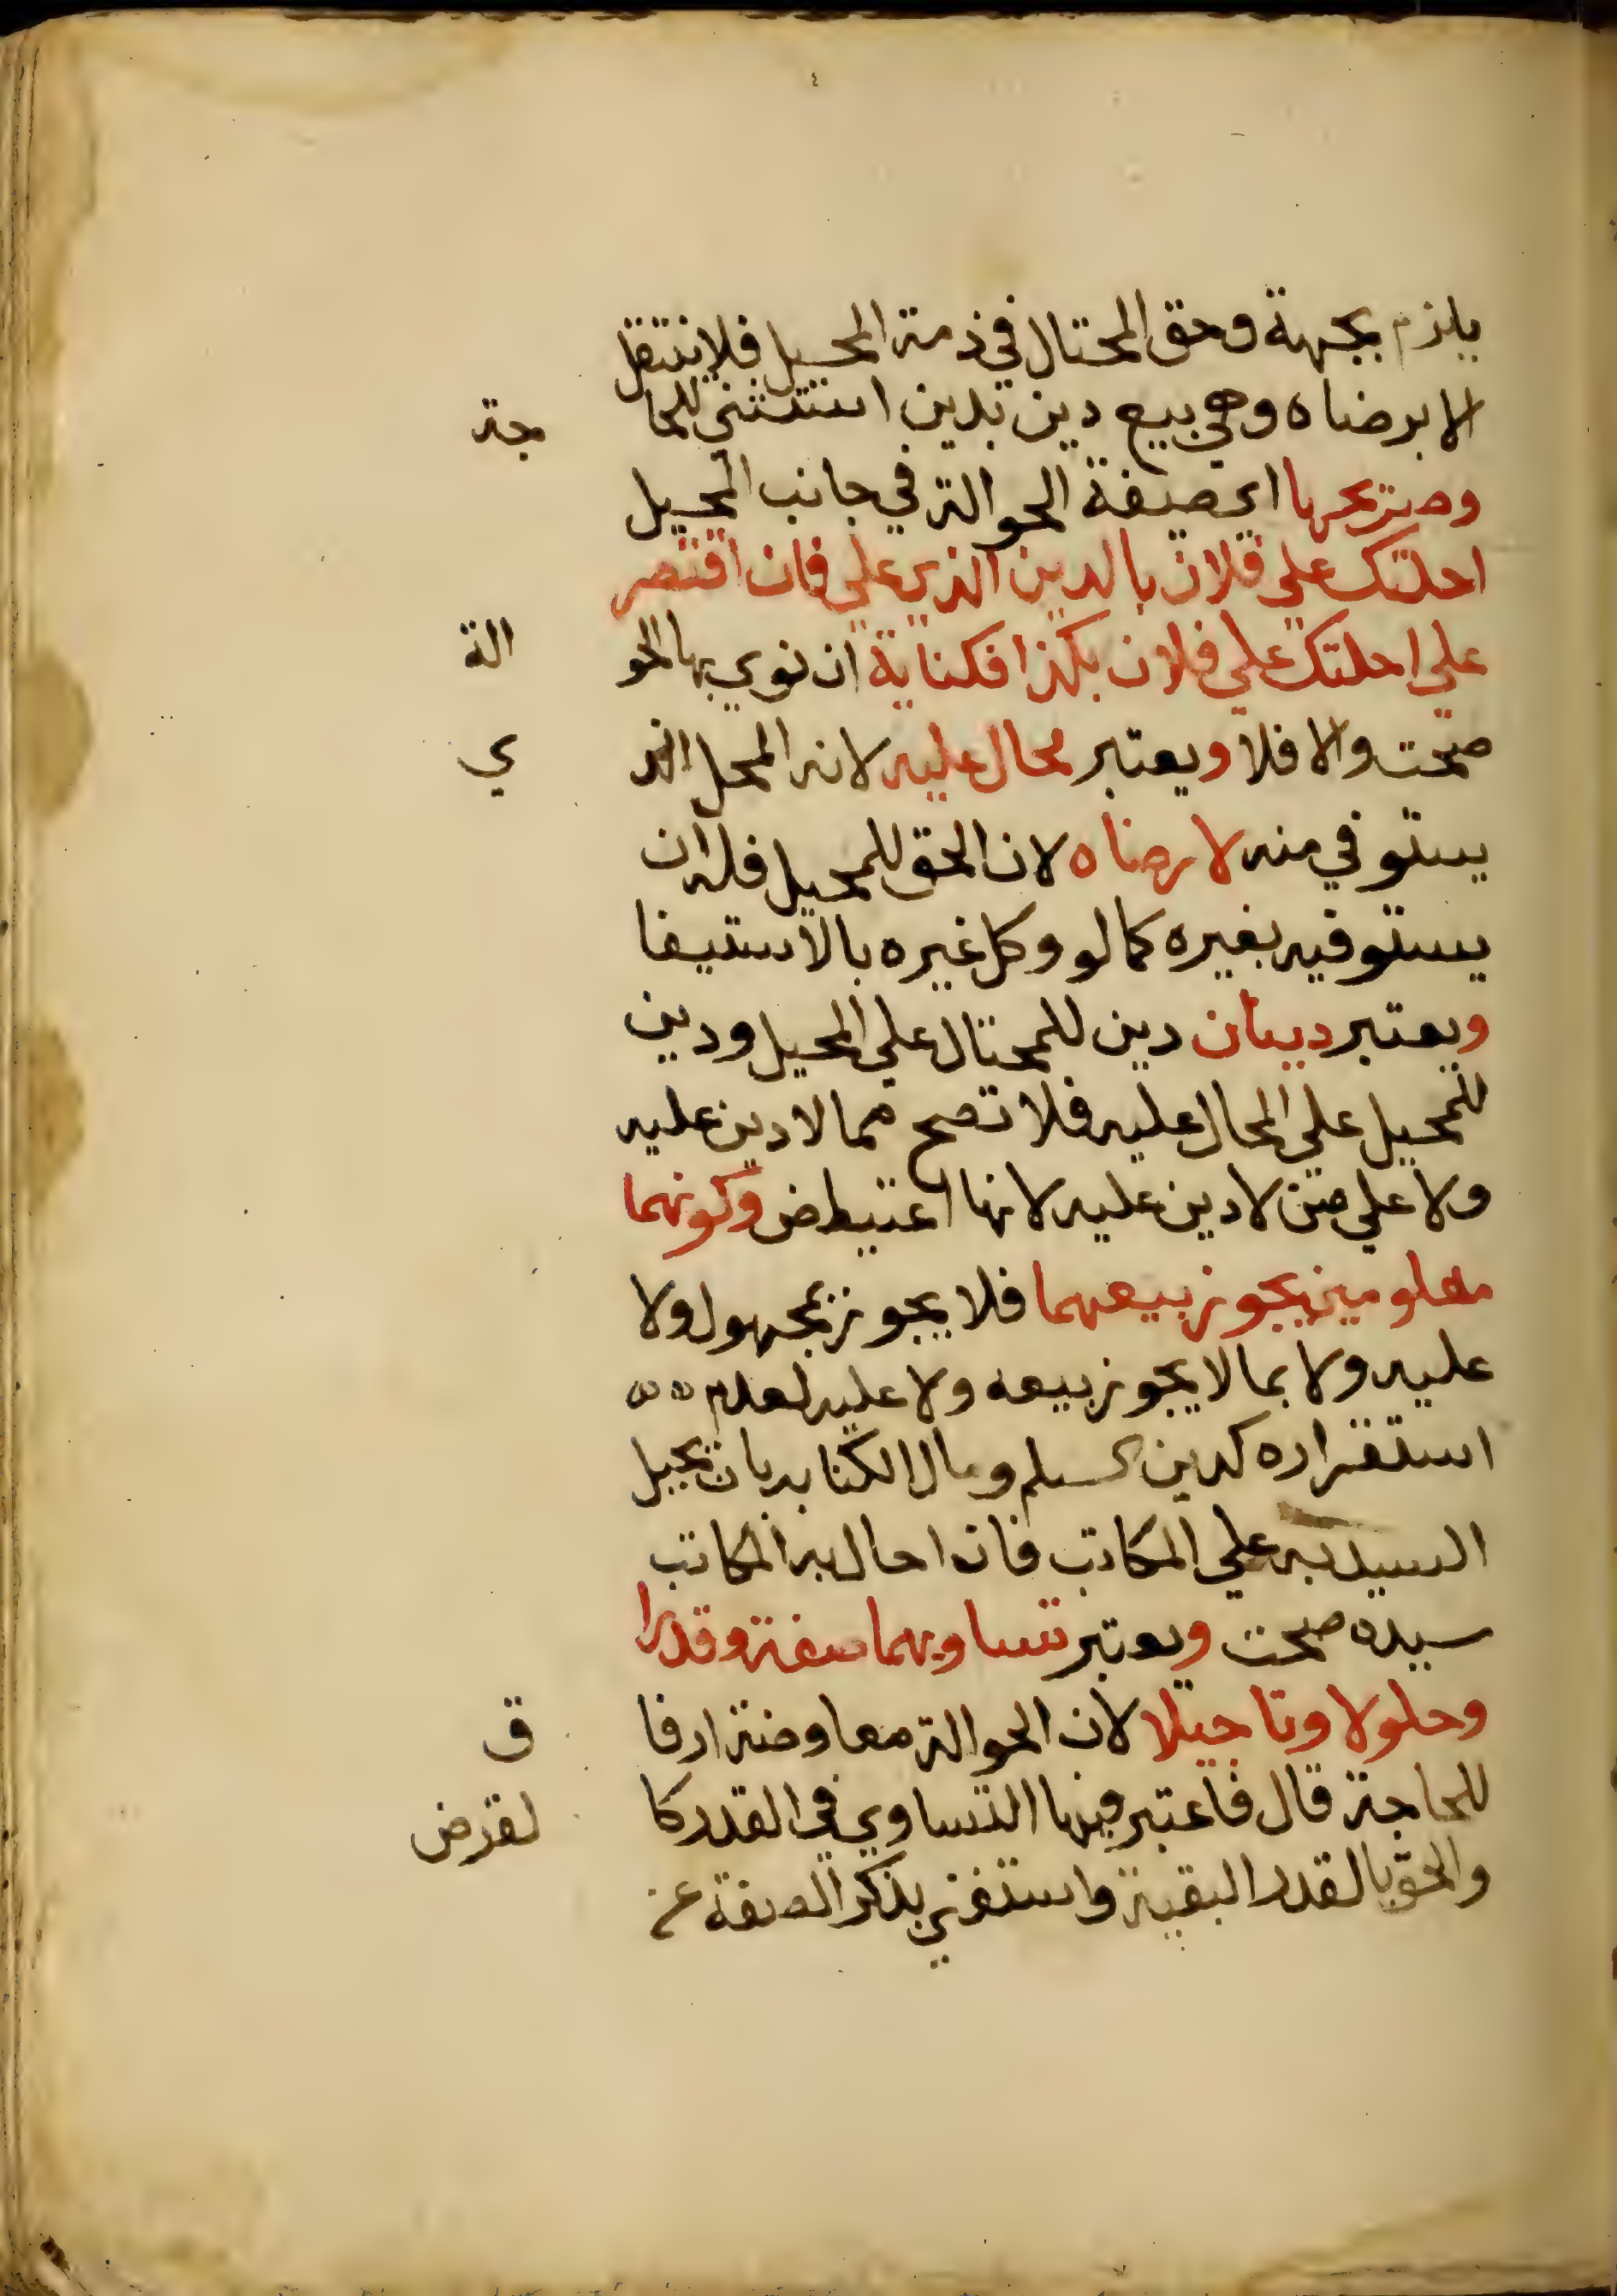 يلزم بجهة وحق المحتال في ذمة المحيل فلا ينتقل
الا برضاه وهي بيع دين بدين استثني للحا جة
وصريحها اي صيغة الحوالة في جانب المحيل
احلتك على فلان بالدين الذي علي فان اقتصر
على احلتك على فلان بكذا فكناية ان نوي بها الحو الة
صحت والا فلا ويعتبر محال عليه لانه المحل الذ ي
يستوفي منه لا رضاه لان الحق للمحيل فله ان
يستوفيه بغيره كما لو وكل غيره بالاستيفا
ويعتبر دينان دين للمحتال على المحيل ودين
للمحيل على المحال عليه فلا تصح مما لا دين عليه
ولا على من لا دين عليه لانها اعتياض وكونهما
معلومين يجوز بيعهما فلا يجوز بمجهول ولا
عليه ولا بما لا يجوز بيعه ولا عليه لعدم
استقراره كدين السلم ومال الكتابة بان يحيل
السيد به على المكاتب فان احال به المكاتب
سيده صحت ويعتبر تساويهما صفة وقدرا
وحلولا وتاجيلا لان الحوالة معاوضة ارفا ق
للحاجة قال فاعتبر فيها التساوي في القدر كا لقرض
والحق بالقدر البقية واستغني بذكر الصفة عن